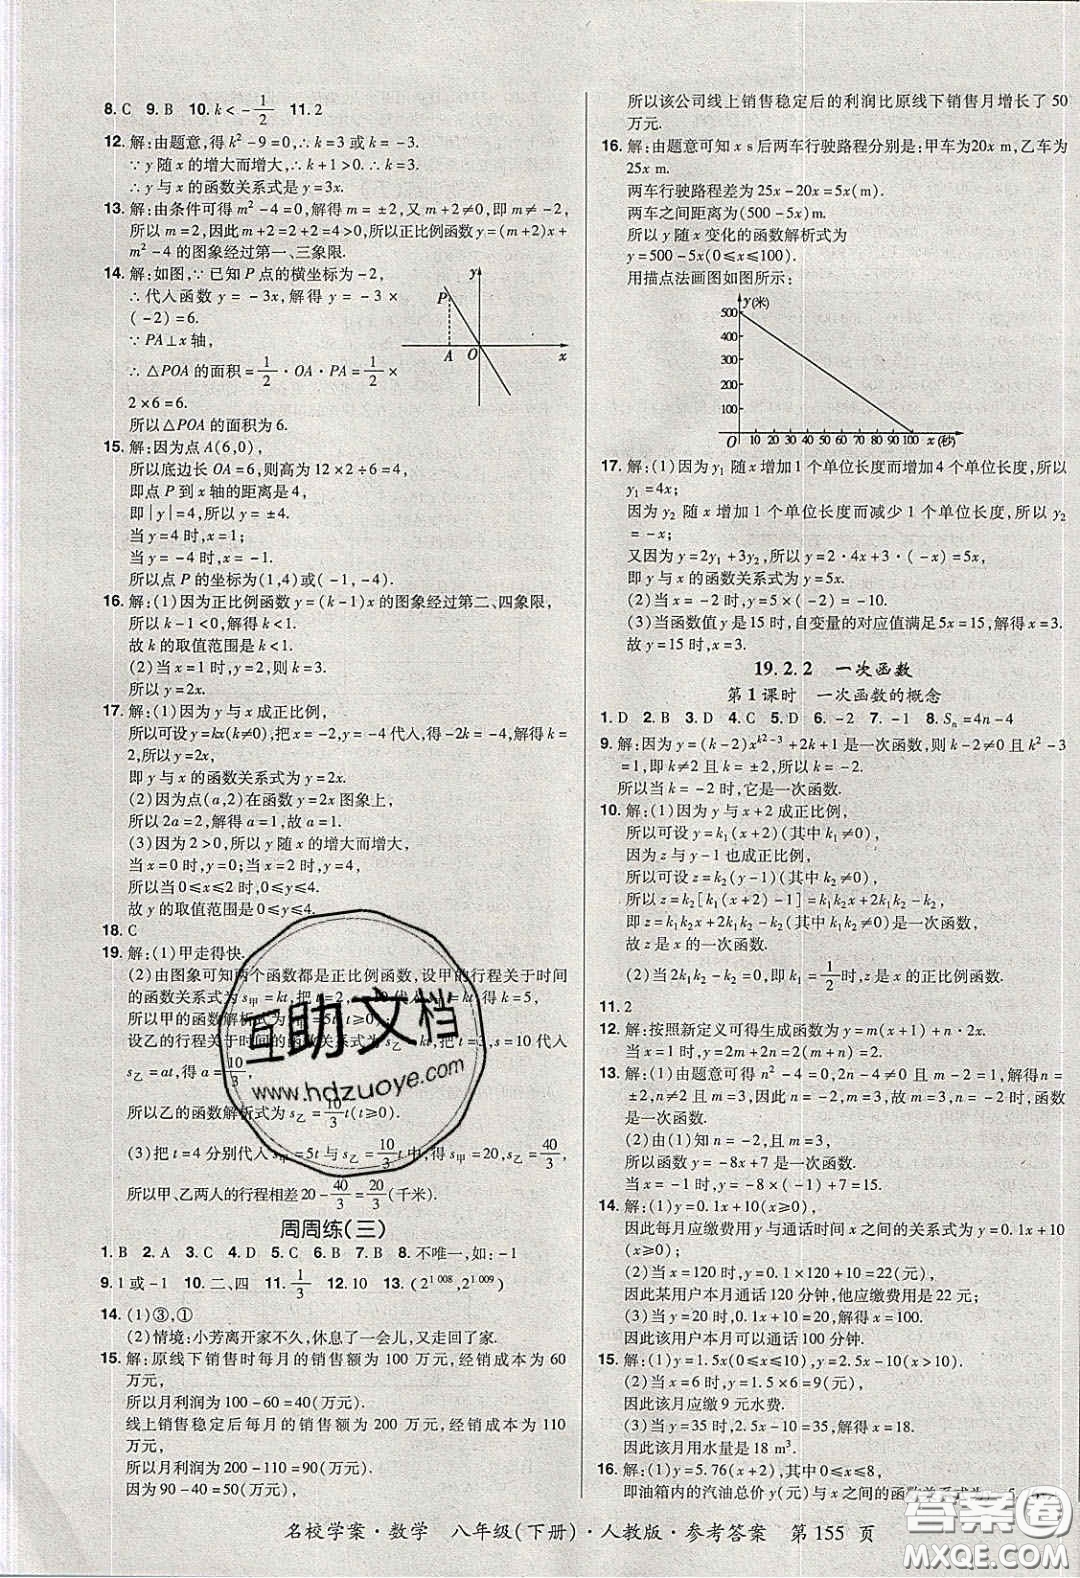 8. C  9. B  10. k<-1/2  11. 2
12. 解:由题意,得 k²-9=0,∴k=3或 k=-3.
∵y随x的增大而增大,∴k+1>0.∴k=3.
∴y与x的函数关系式是 y=3x.
13. 解:由条件可得 m²-4=0,解得 m=±2,又 m+2≠0,即 m≠-2,
所以 m=2,因此 m+2=2+2=4>0,所以正比例函数 y=(m+2)x+
m²-4的图象经过第一、三象限.
14. 解:如图,∵已知 P点的横坐标为-2,
∴代入函数 y=-3x,解得 y=-3×
(-2)=6.
∵PA⊥x轴,
∴△POA的面积=1/2·OA·PA=1/2×
2×6=6.
所以△POA的面积为6.
y
P
A
O
x
15. 解:因为点A(6,0),
所以底边长 OA=6,则高为12×2÷6=4,
即点 P到 x轴的距离是4,
即|y|=4,所以 y=±4.
当 y=4时,x=1;
当 y=-4时,x=-1.
所以点 P的坐标为(1,4)或(-1,-4).
16. 解:(1)因为正比例函数 y=(k-1)x的图象经过第二、四象限,
所以 k-1<0,解得 k<1.
故 k的取值范围是 k<1.
(2)当 x=1时,y=2,则 k=3.
所以 y=2x.
17. 解:(1)因为 y与x成正比例,
所以可设 y=kx(k≠0),把x=-2,y=-4代入,得-4=-2k,解得k=
2,所以 y=2x.
即 y与x的函数关系式为 y=2x.
(2)因为点(a,2)在函数 y=2x图象上,
所以2a=2,解得 a=1,故 a=1.
(3)因为2>0,所以 y随x的增大而增大.
当 x=0时,y=0;当 x=2时,y=4,
所以当0≤x≤2时,0≤y≤4.
故 y的取值范围是0≤y≤4.
18. C
19. 解:(1)甲走得快.
(2)由图象可知两个函数都是正比例函数,设甲的行程关于时间
的函数关系式为 s甲=kt,把 t=2,
代入,得 k=5,
所以甲的函数解析式为 s甲=5t(t≥0);
设乙的行程关于时间的函数关系式为 s乙=at,把 t=3,s=10代入
s乙=at,得 a=10/3,
所以乙的函数解析式为 s乙=10/3t(t≥0).
(3)把 t=4分别代入 s甲=5t与 s乙=10/3t中,得 s甲=20,s乙=40/3,
所以甲、乙两人的行程相差20-40/3=20/3(千米).
周周练(三)
1. B  2. A  3. C  4. D  5. C  6. B  7. B  8. 不唯一,如:-1
9. 1或-1  10. 二、四  11. 1/3  12. 10  13. (2¹⁰⁰⁸,2¹⁰⁰⁹)
14. (1)③,①
(2)情境:小芳离开家不久,休息了一会儿,又走回了家.
15. 解:原线下销售时每月的销售额为100万元,经销成本为60
万元,
所以月利润为100-60=40(万元).
线上销售稳定后每月的销售额为200万元,经销成本为110
万元,
所以月利润为200-110=90(万元).
因为90-40=50(万元),
所以该公司线上销售稳定后的利润比原线下销售月增长了50
万元.
16. 解:由题意可知 x s后两车行驶路程分别是:甲车为20x m,乙车为
25x m.
两车行驶路程差为25x-20x=5x(m).
两车之间距离为(500-5x)m.
所以 y随x变化的函数解析式为
y=500-5x(0≤x≤100).
用描点法画图如图所示:
y(米)
500
400
300
200
100
O 10 20 30 40 50 60 70 80 90 100 x(秒)
17. 解:(1)因为 y₁随x增加1个单位长度而增加4个单位长度,所以
y₁=4x;
因为 y₂随x增加1个单位长度而减少1个单位长度,所以 y₂
=-x;
又因为 y=2y₁+3y₂,所以 y=2·4x+3·(-x)=5x,
即 y与x的函数关系式为 y=5x.
(2)当 x=-2时,y=5×(-2)=-10.
(3)当函数值 y是15时,自变量的对应值满足5x=15,解得 x=3.
故 y=15时,x=3.
19.2.2 一次函数
第1课时 一次函数的概念
1. D  2. B  3. D  4. C  5. D  6. -2  7. -1  8. Sₙ=4n-4
9. 解:因为 y=(k-2)x^(k²-3)+2k+1是一次函数,则 k-2≠0且 k²-3
=1,即 k≠2且 k=±2,所以 k=-2,
所以当 k=-2时,它是一次函数.
10. 解:(1)因为 y与x+2成正比例,
所以可设 y=k₁(x+2)(其中 k₁≠0),
因为 z与y-1也成正比例,
所以可设 z=k₂(y-1)(其中 k₂≠0),
所以 z=k₂[k₁(x+2)-1]=k₁k₂x+2k₁k₂-k₂,
即 z=k₁k₂x+2k₁k₂-k₂,其中 k₁k₂≠0,是一次函数.
故 z是x的一次函数.
(2)当2k₁k₂-k₂=0,即 k₁=1/2时,z是x的正比例函数.
11. 2
12. 解:按照新定义可得生成函数为 y=m(x+1)+n·2x.
当 x=1时,y=2m+2n=2(m+n)=2×1=2.
13. 解:(1)由题意可得 n²-4=0,2n-4≠0且 m=3,解得 n=
±2,n≠2,m=3,即 m=3,n=-2时,函数
是一次函数.
(2)由(1)知 n=-2,且 m=3;
所以函数 y=-8x+7是一次函数.
当 x=-1时,y=-8×(-1)+7=15.
14. 解:(1)y=0.1x+10(x≥0),
因此每月应缴费用 y与通话时间 x之间的关系式为 y=0.1x+10
(x≥0);
(2)当 x=120时,y=0.1×120+10=22(元),
因此某用户本月通话120分钟,他应缴费用为22元;
(3)当 y=20时,20=0.1x+10,解得 x=100.
因此该用户本月可以通话100分钟.
15. 解:(1)y=1.5x(0≤x≤8),y=2.5x-10(x>8).
(2)当 x=6时,y=1.5×6=9(元),
因此该月应缴9元水费.
(3)当 y=35时,2.5x-10=35,解得 x=18.
因此该月用水量是18 m³.
16. 解:(1)y=5.76(x+2),其中0≤x≤8,
即油箱内的汽油总价 y(元)与 x之间的函数关系式为
名校学案·数学 八年级(下册)·人教版·参考答案 第155页
互助文档
www.hdzuoye.com
答案圈
MXQE.COM